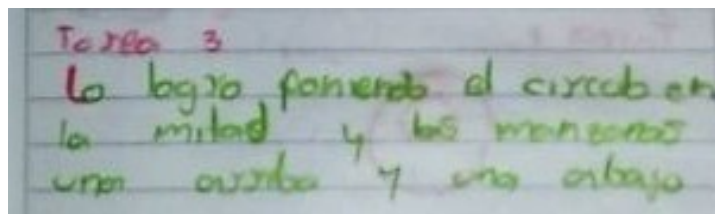 Tarea 3
Lo logro poniendo el circulo en
la mitad y las manzanas
una arriba y una abajo